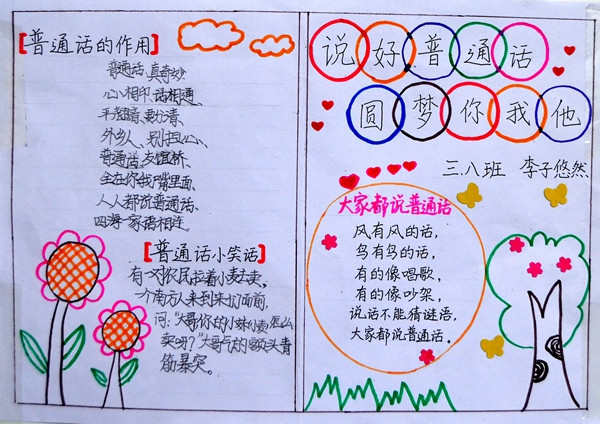 【普通话的作用】
普通话,真奇妙
心心相印,话相通、
平翘音、要分清、
外乡人、别担心、
普通话、友谊桥、
全在你我嘴里面、
人人都说普通话、
四海一家语相连
【普通话小笑话】
有一对农民拉着小麦去卖。
一个南方人来到来他们面前,
问:"大哥你的小妹
卖吗?"大哥气的额头青
筋暴突。
说好普通话
圆梦你我他
三.八班 李子悠然
大家都说普通话
风有风的话,
鸟有鸟的话,
有的像唱歌,
有的像吵架,
说话不能猜谜语,
大家都说普通话。